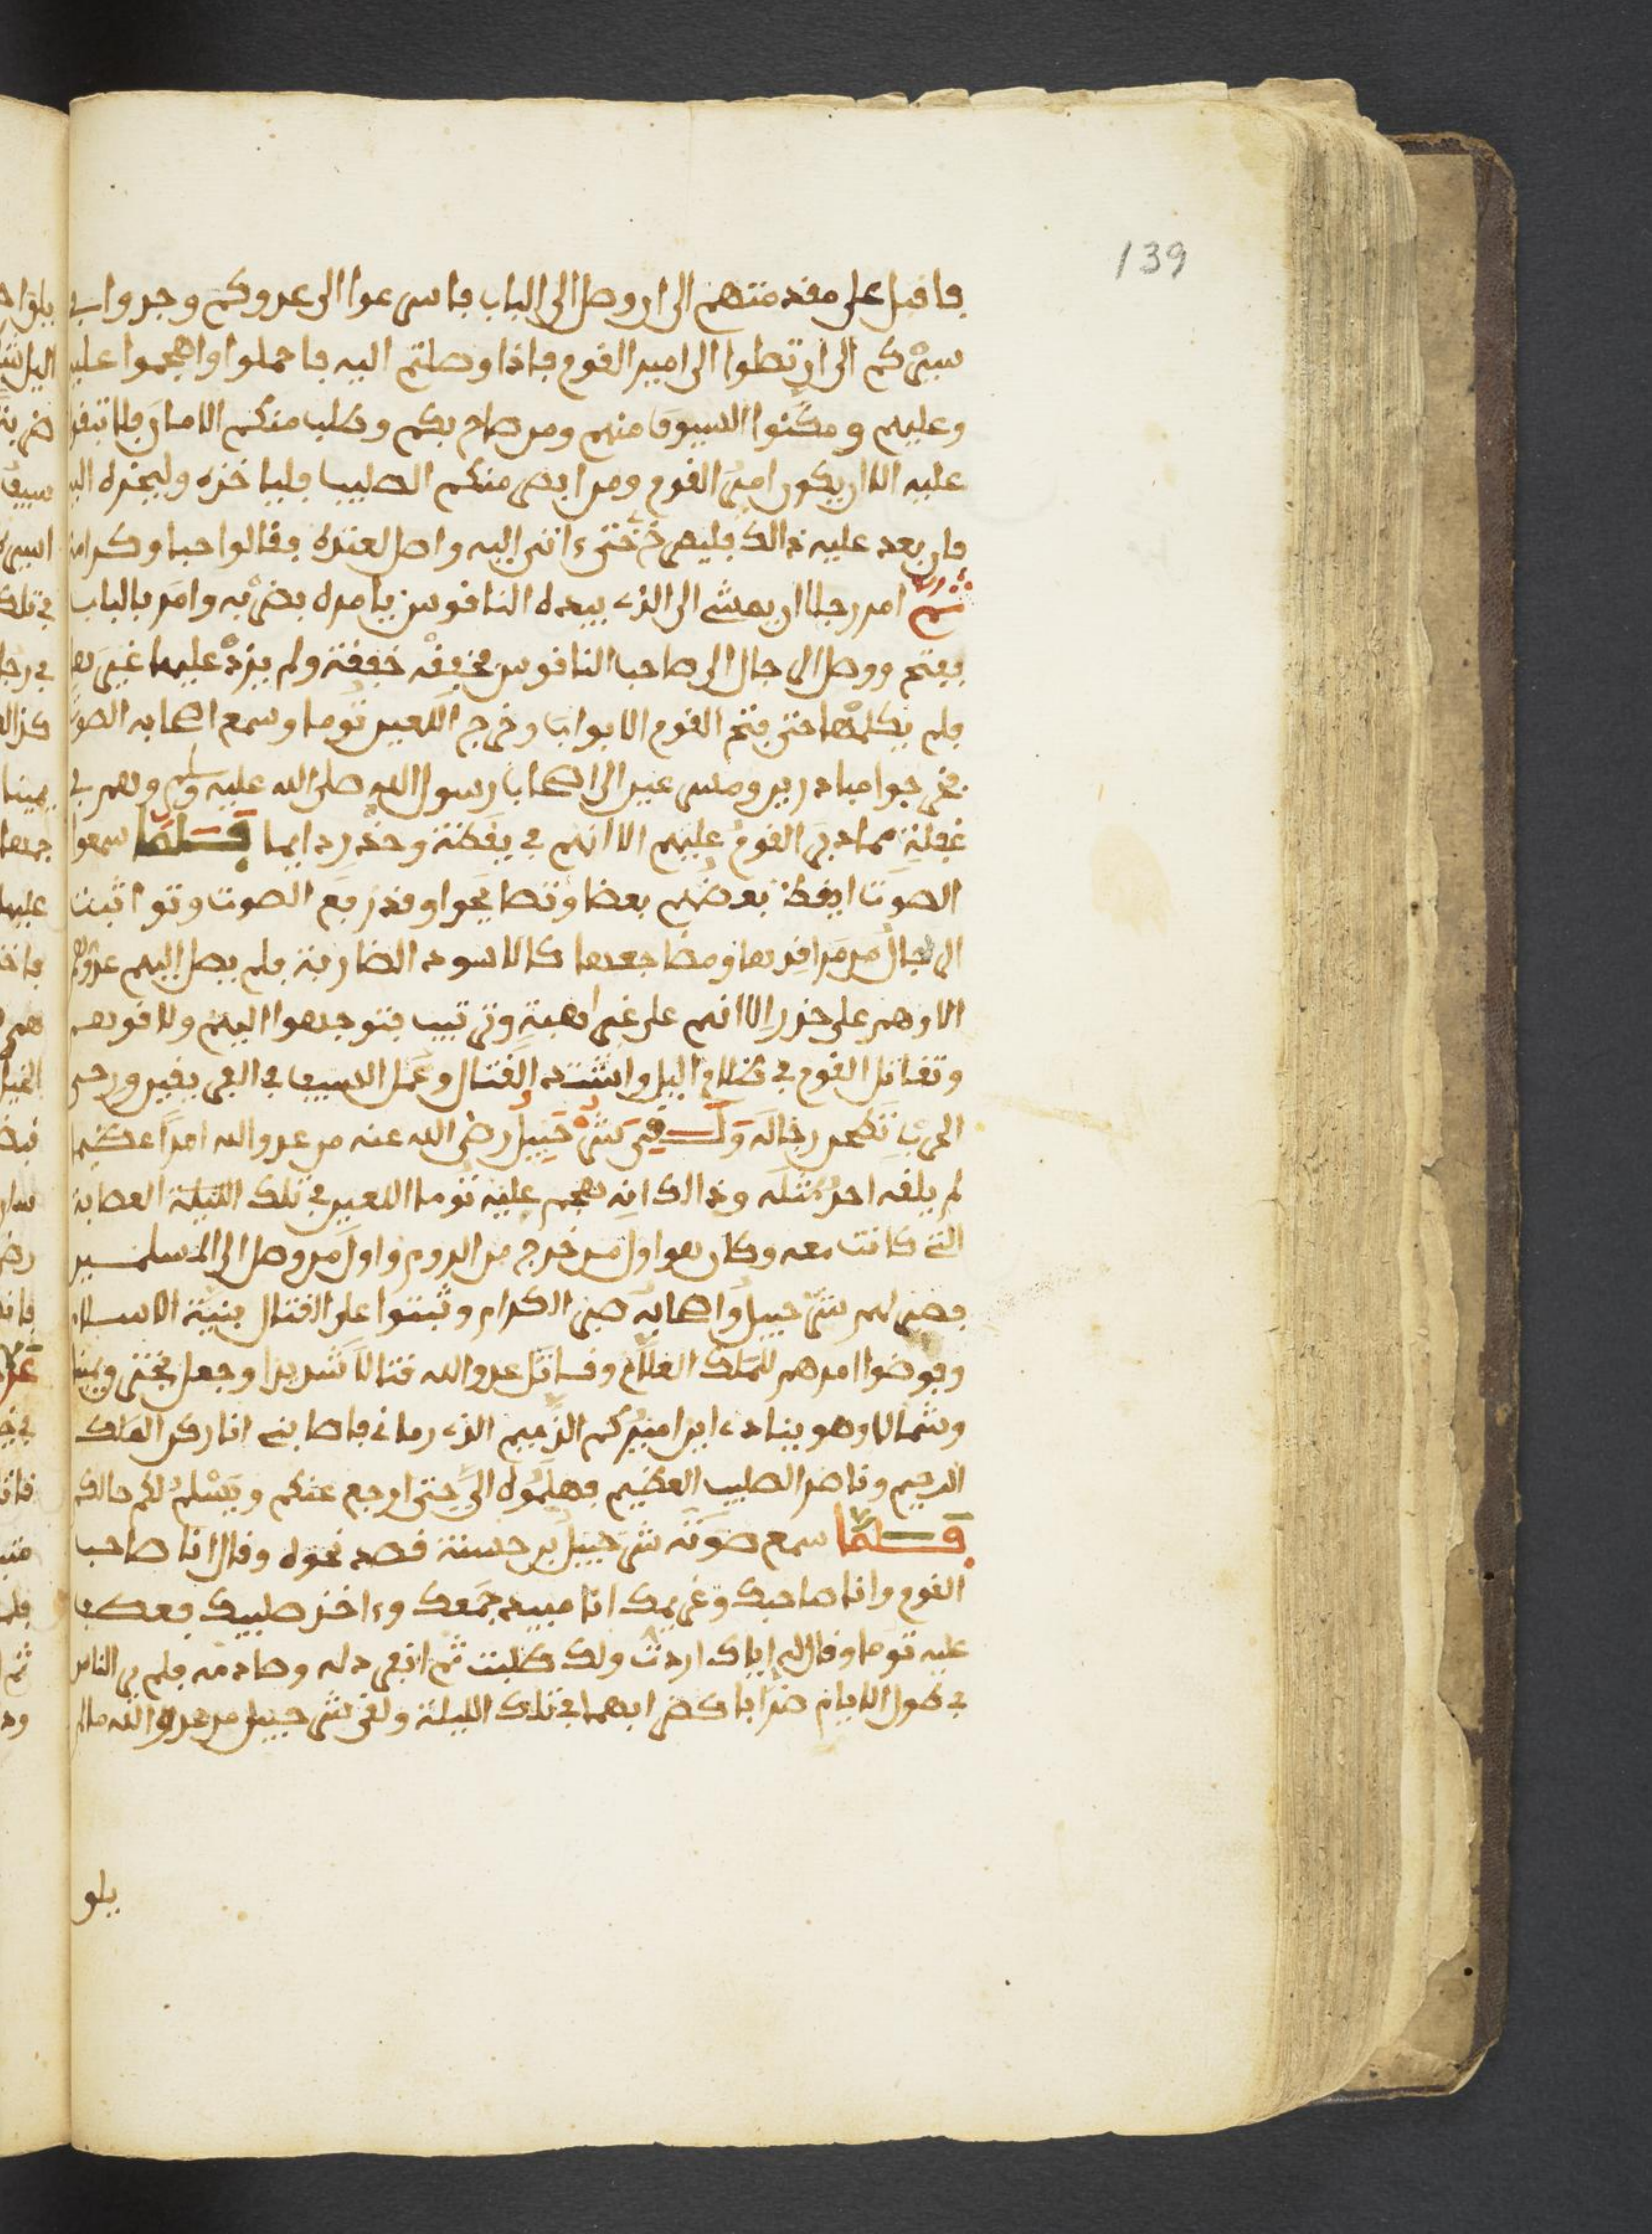 139
فاقبل على مقدمتهم الى ان وصل الى الباب فاسرعوا الى عدوكم وجدوا في
سيركم الى ان تصلوا الى امير القوم فاذا وصلتم اليه فاحملوا واهجموا عليه
وعليهم ومكنوا السيوف منهم ومن صاح بكم وطلب منكم الامان فلا تبقوا
عليه الا ان يكون امير القوم ومن ابصر منكم الصليب فلياخذه وليجذه اليه
فان بعد عليه ذالك فليصرخ حتى ءاتى اليه واصل لعنده فقالوا حبا وكرامة
ثم امر رجلا ان يمشى الى الذى بيده الناقوس يامره بضربه وامر بالباب
ففتح ووصل الرجال الى صاحب الناقوس فخفقه خفقة ولم يزد عليها غيرها
فلم يكلمها حتى فتح القوم الابواب وخرج اللعين توما وسمع اصحابه الصوت
فخرجوا مبادرين ومسرعين الى اصحاب رسول الله صلى الله عليه وسلم وهم في
غفلة مما دبر القوم عليهم الا انهم في يقظة وحذر دايما فلما سمعوا
الصوت ايقظ بعضهم بعضا وتصايحوا وقد رفع الصوت وتواثبت
الرجال من مراقدها ومضاجعها كالاسود الضارية فلم يصل اليهم عدوهم
الا وهم على حذر الا انهم على غير اهبة وترتيب فتوجهوا اليهم ولاقوهم
وتقاتل القوم في ظلام اليل واشتد القتال وعمل السيف في الفريقين ورحى
الحرب تطحن رجاله ولقي شرحبيل رضى الله عنه من عدو الله امرا عظيما
لم يلقه احد مثله وذالك انه هجم عليه توما اللعين في تلك الليلة العصابة
التى كانت معه وكان هو اول من خرج من الروم واول من وصل الى المسلمين
فصبر لهم شرحبيل واصحابه صبر الكرام وثبتوا على القتال بنية الاسلام
وفوضوا امرهم للملك العلام وقاتل عدو الله قتالا شديدا وجعل يخترق يمينا
وشمالا وهو ينادى اين اميركم الذميم الذى رمانى فاصابنى انا ركن الملك
الرحيم وناصر الصليب العظيم فهلموه الى حتى ارجع عنكم ويسلم لكم حالكم
فلما سمع صوته شرحبيل بن حسنة قصد نحوه وقال انا صاحب
القوم وانا صاحبك وغريمك انا مبيد جمعك وءاخذ صليبك فعطف
عليه توما وقال له اياك اردت ولك طلبت ثم انفرد له وصادمه فلم ير الناس
في طول الايام ضرابا كضرابهما في تلك الليلة ولقي شرحبيل من عدو الله مالم
يلو